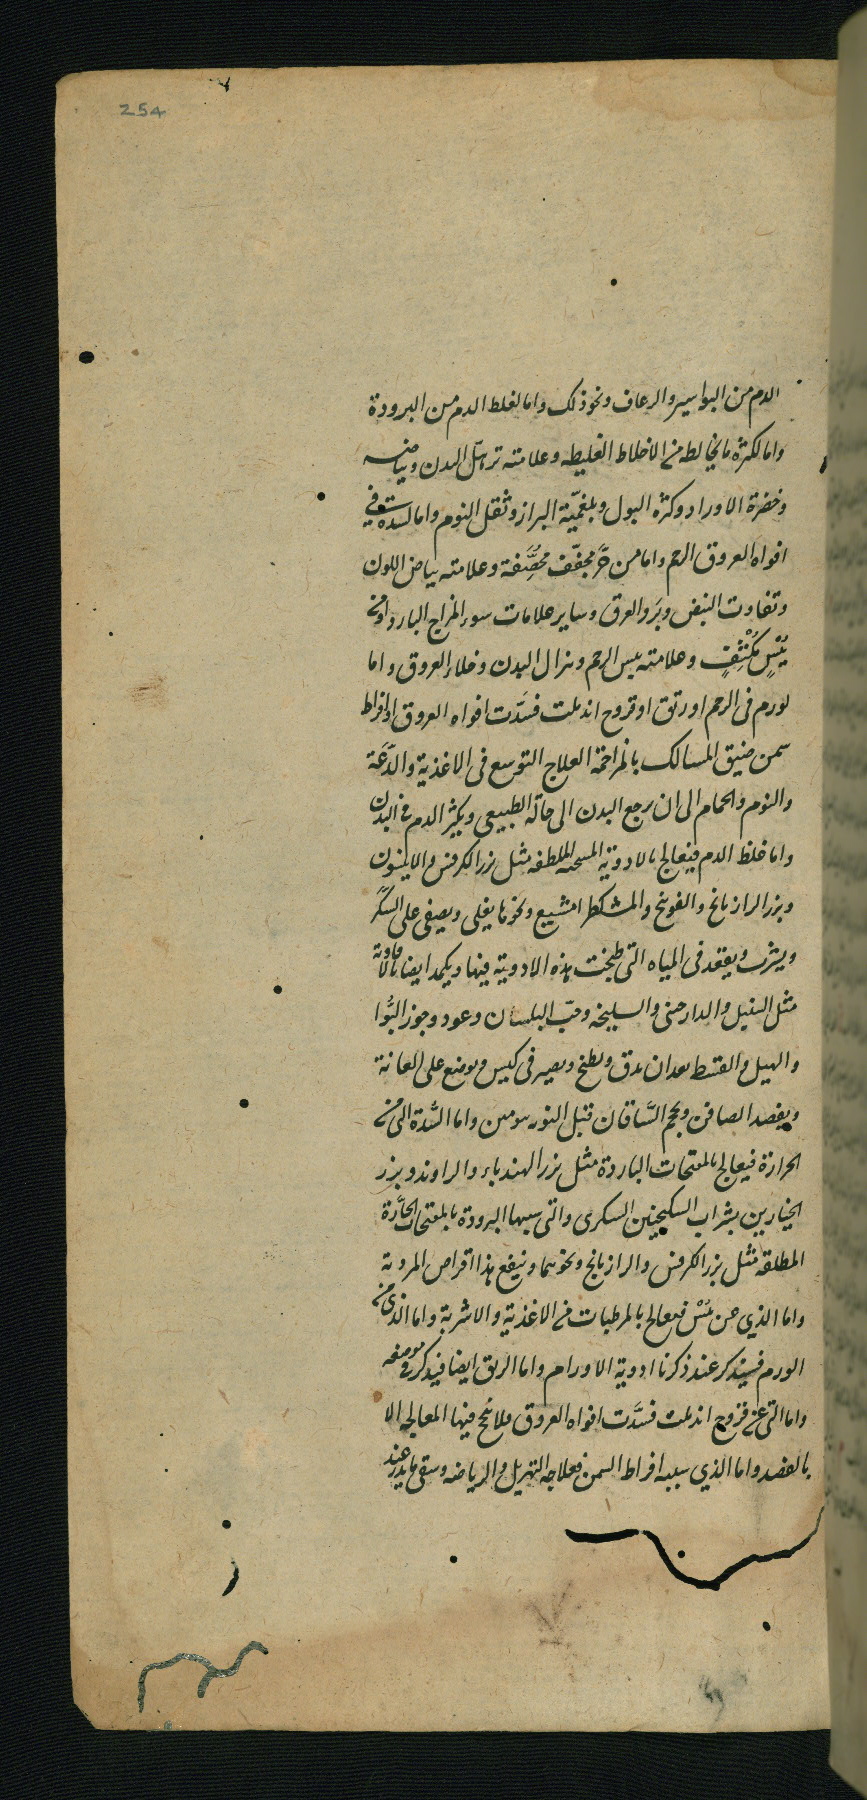 254
الدم من البواسير والرعاف ونحو ذلك واما لغلظ الدم من البرودة
واما لكثرة ما يخالطه من الاخلاط الغليظه وعلامته ترهل البدن وبياضه
وخضرة الاوراد وكثرة البول وبلغميّة البراز وثقل النوم واما لسدة في
افواه العروق الرحم واما من حَرّ مجفّف وعلامته بياض اللون
وتفاوت النبض وبَرَد العرق وساير علامات سوء المزاج البارد او من
يُبْسٍ مُكَثّفٍ وعلامته يبس الرحم وهزال البدن وخلاء العروق واما
لورم فى الرحم او رتق او قروح اندملت فسَدّت افواه العروق او افراط
سمن ضيق المسالك بالمزاحمة العلاج التوسع فى الاغذية والدَّعَة
والنوم والحمام الى ان يرجع البدن الى حاله الطبيعى ويكثر الدم فى البدن
واما غلظ الدم فيعالج بالادوية المسخنه الملطفه مثل بزر الكرفس والانيسون
وبزر الرازيانج والفوتنج والمشكطرامشيع ونحوها يغلى ويصفى على السكّر
ويشرب ويقعد فى المياه التى طبخت هذه الادوية فيها ويكمد ايضا بالافاوية
مثل السنبل والدارصينى والسليخه وحبّ البلسان وعود وجوز البُوا
والهيل والقسط بعد ان يدق ويطبخ ويصير فى كيس ويوضع على العانة
ويفصد الصافن ويحجم السَّاقان قبل النوبه بيومين واما السُّدة التى من
الحرارة فيعالج بالمفتحات الباردة مثل بزر الهندباء والراوند وبزر
الخيارين بشراب السكنجبين السكرى والتى سببها البرودة بالمفتحات الحَارَّة
المطلقه مثل بزر الكرفس والرازيانج ونحوهما وينفع هذا اقراص المر وية
واما الذي من يُبْس فيعالج بالمرطبات من الاغذية والاشربة واما الذى من
الورم فسيذكر عند ذكرنا ادوية الاورام واما الرتق ايضا فيذكر فى موضعه
واما التى عن قروح اندملت فسَدَّت افواه العروق فلا نجح فيها المعالجه الا
بالفصد واما الذي سببه افراط السمن فعلاجه التهزيل والرياضه وسقى ما يدر عند